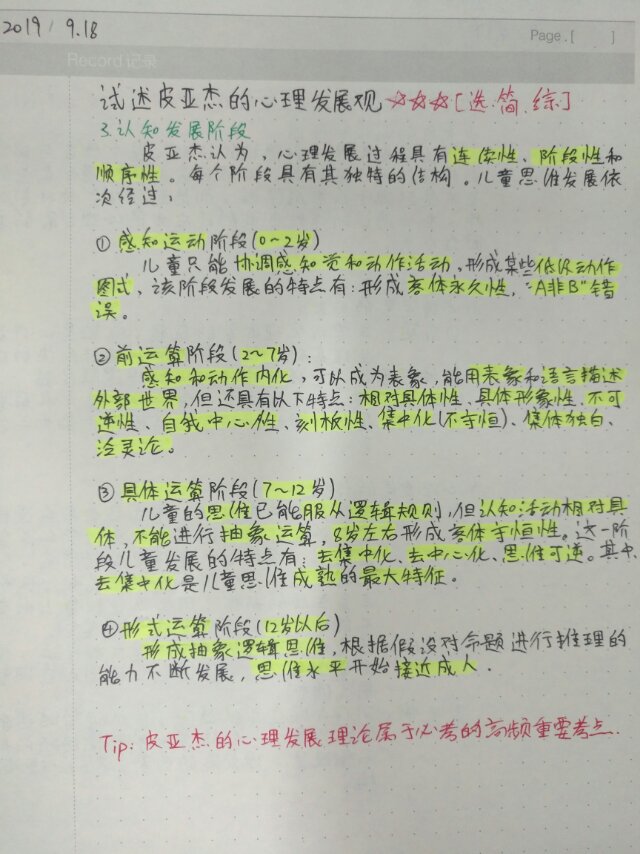 2019/9.18
Page.[ ]
Record记录
试述皮亚杰的心理发展观 ☆☆☆[选.简.综]
3.认知发展阶段
皮亚杰认为,心理发展过程具有连续性、阶段性和
顺序性。每个阶段具有其独特的结构。儿童思维发展依
次经过:
①感知运动阶段(0~2岁)
儿童只能协调感知觉和动作活动,形成某些低级动作
图式,该阶段发展的特点有:形成客体永久性,"A非B"错
误。
②前运算阶段(2~7岁):
感知和动作内化,可以成为表象,能用表象和语言描述
外部世界,但还具有以下特点:相对具体性、具体形象性、不可
逆性、自我中心性、刻板性、集中化(不守恒)、集体独白、
泛灵论。
③具体运算阶段(7~12岁)
儿童的思维已能服从逻辑规则,但认知活动相对具
体,不能进行抽象运算,8岁左右形成客体守恒性。这一阶
段儿童发展的特点有:去集中化、去中心化、思维可逆。其中,
去集中化是儿童思维成熟的最大特征。
④形式运算阶段(12岁以后)
形成抽象逻辑思维,根据假设对命题进行推理的
能力不断发展,思维水平开始接近成人.
Tip:皮亚杰的心理发展理论属于必考的高频重要考点.